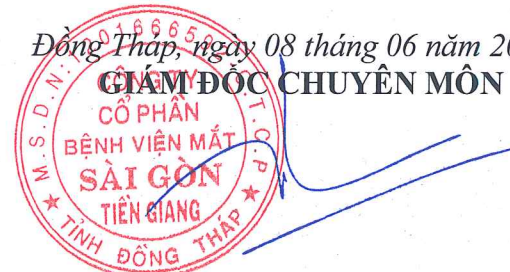 Đồng Tháp, ngày 08 tháng 06 năm
GIÁM ĐỐC CHUYÊN MÔN
CÔNG TY
CỔ PHẦN
BỆNH VIỆN MẮT
SÀI GÒN
TIỀN GIANG
TỈNH ĐỒNG THÁP